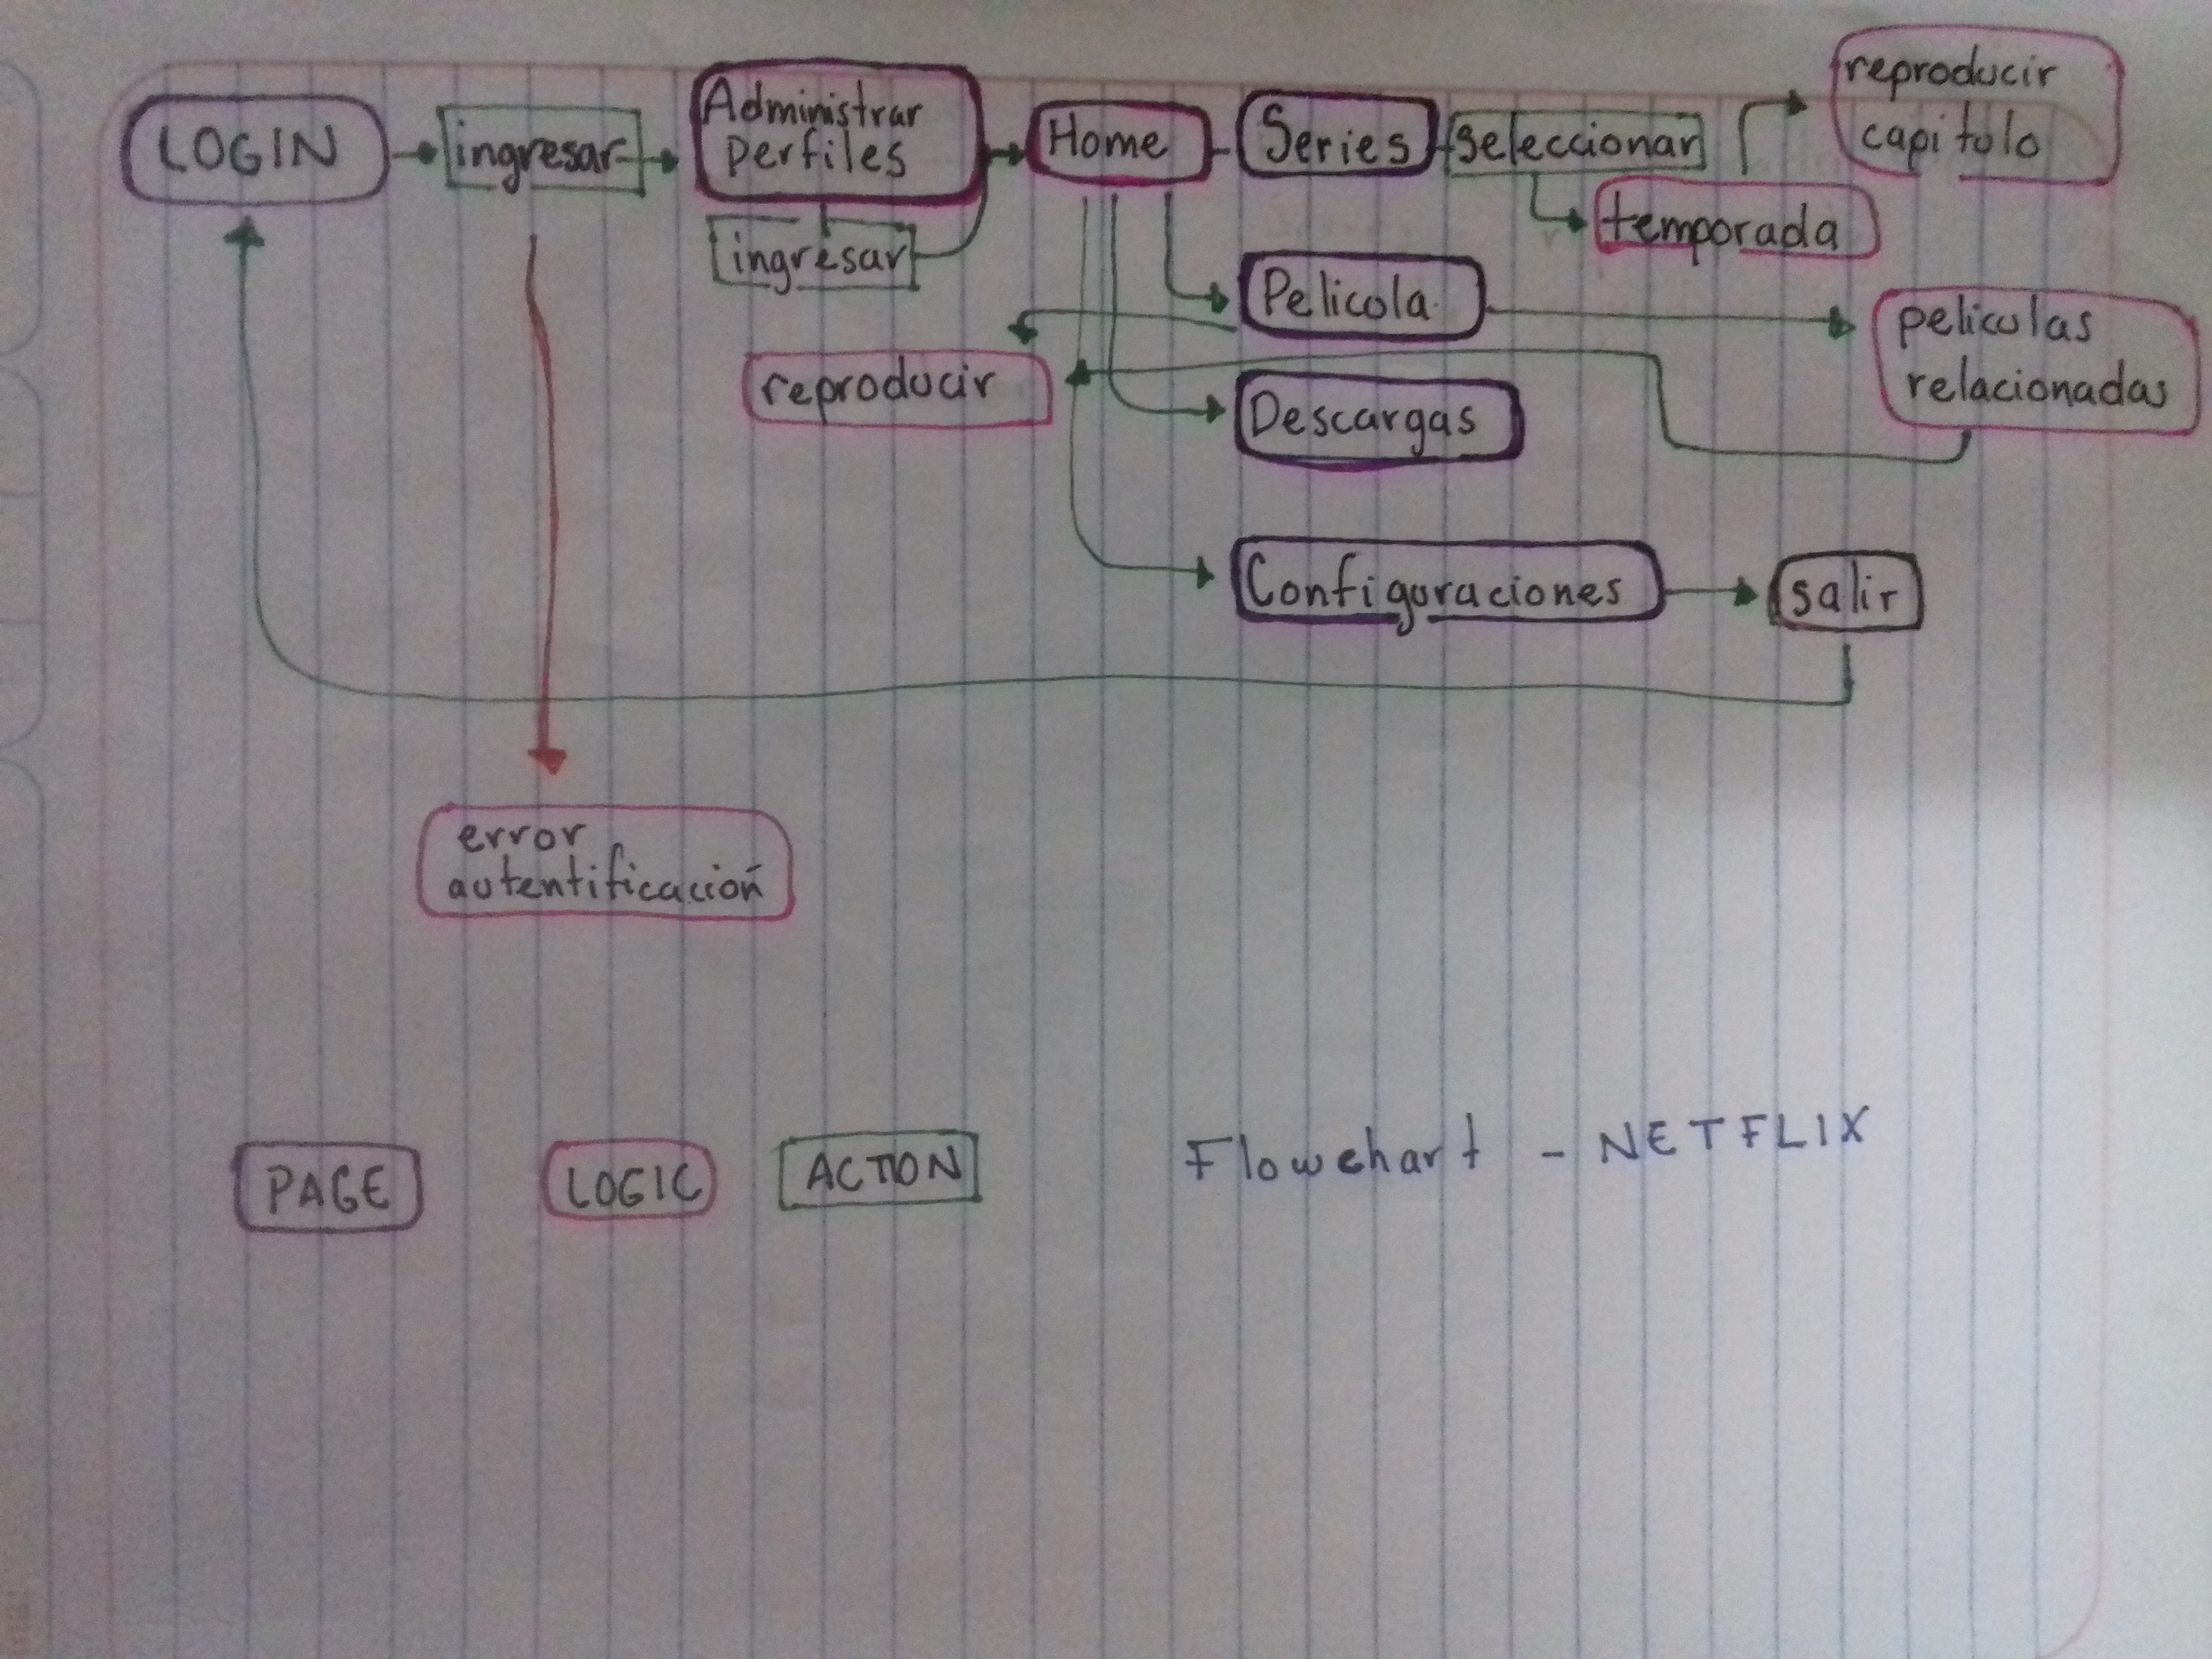 LOGIN
ingresar
Administrar
perfiles
ingresar
Home
Series
seleccionar
reproducir
capitulo
temporada
Pelicula
reproducir
peliculas
relacionadas
Descargas
Configuraciones
salir
error
autentificación
PAGE
LOGIC
ACTION
Flowchart - NETFLIX